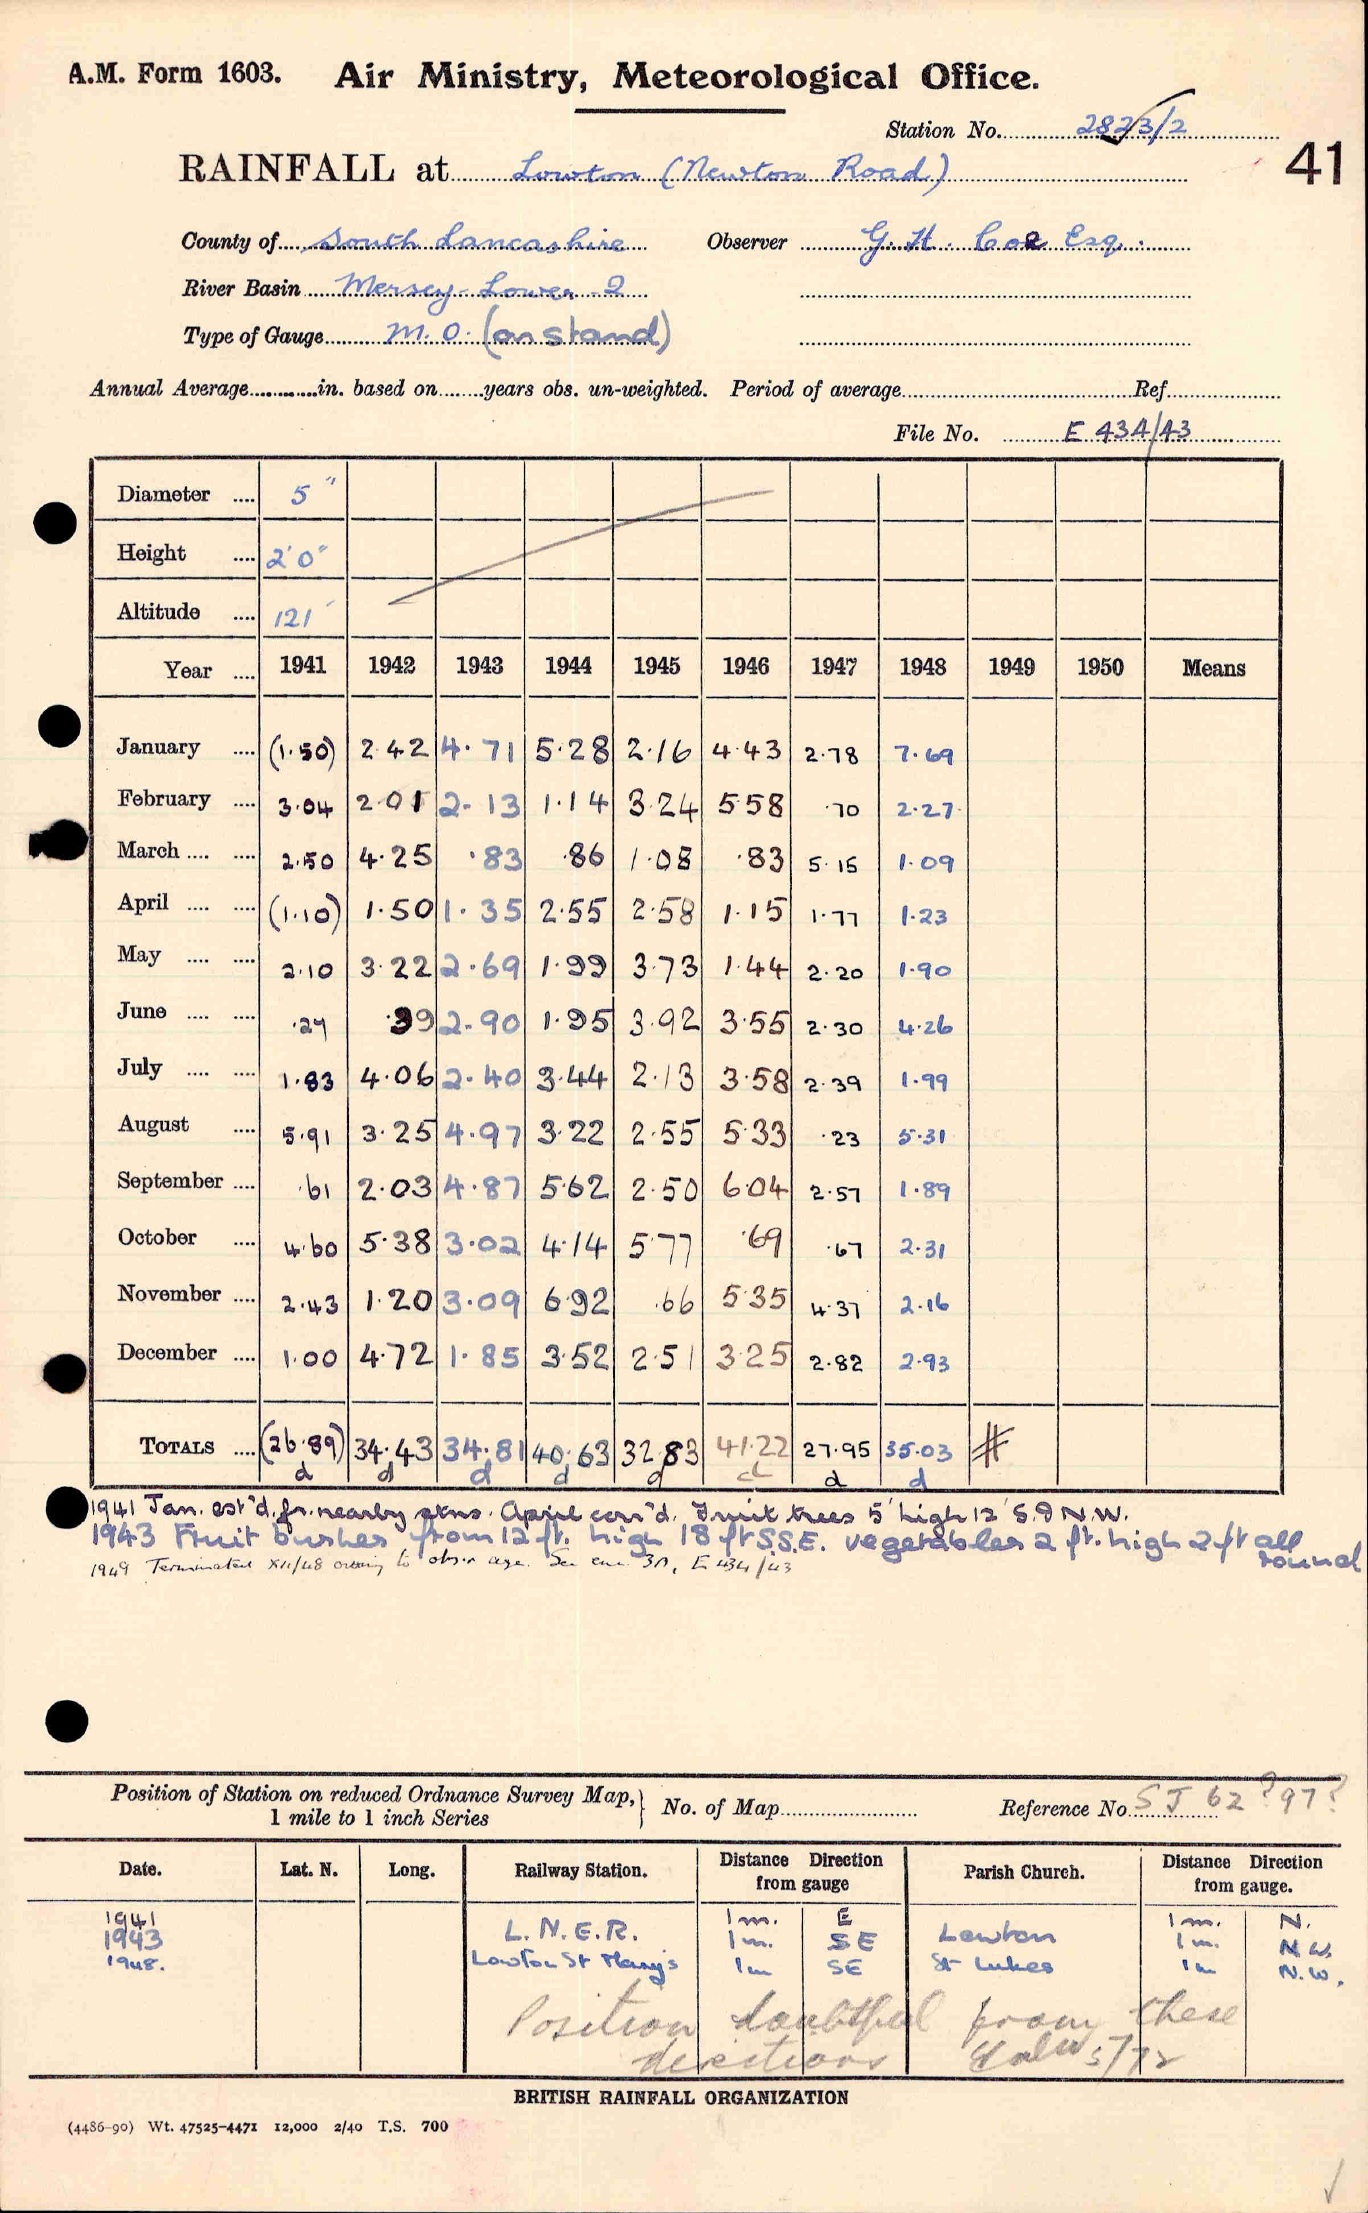 A.M. Form 1603. Air Ministry, Meteorological Office.
Station No. 2823/2
41
RAINFALL at Lowton (Newton Road)
County of South Lancashire Observer G. H. Coe Esq.
River Basin Mersey-Lower 2
Type of Gauge M.O. (on stand)
Annual Average in. based on years obs. un-weighted. Period of average Ref.
File No. E 434/43
Diameter .... 5"
Height .... 2'0"
Altitude .... 121'
Year .... 1941 1942 1943 1944 1945 1946 1947 1948 1949 1950 Means
January .... (1.50) 2.42 4.71 5.28 2.16 4.43 2.78 7.69
February .... 3.04 2.01 2.13 1.14 3.24 5.58 .70 2.27
March .... .... 2.50 4.25 .83 .86 1.08 .83 5.15 1.09
April .... .... (1.10) 1.50 1.35 2.55 2.58 1.15 1.77 1.23
May .... .... 2.10 3.22 2.69 1.99 3.73 1.44 2.20 1.90
June .... .... .27 .39 2.90 1.95 3.92 3.55 2.30 4.26
July .... .... 1.83 4.06 2.40 3.44 2.13 3.58 2.39 1.99
August .... 5.91 3.25 4.97 3.22 2.55 5.33 .23 5.31
September .... .61 2.03 4.87 5.62 2.50 6.04 2.57 1.89
October .... 4.60 5.38 3.02 4.14 5.77 .69 .67 2.31
November .... 2.43 1.20 3.09 6.92 .66 5.35 4.37 2.16
December .... 1.00 4.72 1.85 3.52 2.51 3.25 2.82 2.93
TOTALS .... (26.89) 34.43 34.81 40.63 32.83 41.22 27.95 35.03 #
d d d d d d d d
1941 Jan. est'd. fr. nearby stns. April corr'd. Fruit trees 5' high 12' S. & N.W.
1943 Fruit bushes from 12 ft. high 18 ft S.S.E. vegetables 2 ft. high 2 ft all round
1949 Terminated XII/48 owing to obsr age. See enc. 3A, E 434/43
Position of Station on reduced Ordnance Survey Map, 1 mile to 1 inch Series } No. of Map Reference No. SJ 62?97?
Date. Lat. N. Long. Railway Station. Distance Direction from gauge Parish Church. Distance Direction from gauge.
1941 1m. E 1m. N.
1943 L.N.E.R. 1m. SE Lowton 1m. N.W.
1948. Lowton St Mary's 1m SE St Lukes 1m N.W.
Position doubtful from these
directions 5/72
BRITISH RAINFALL ORGANIZATION
(4486-90) Wt. 47525-4471 12,000 2/40 T.S. 700